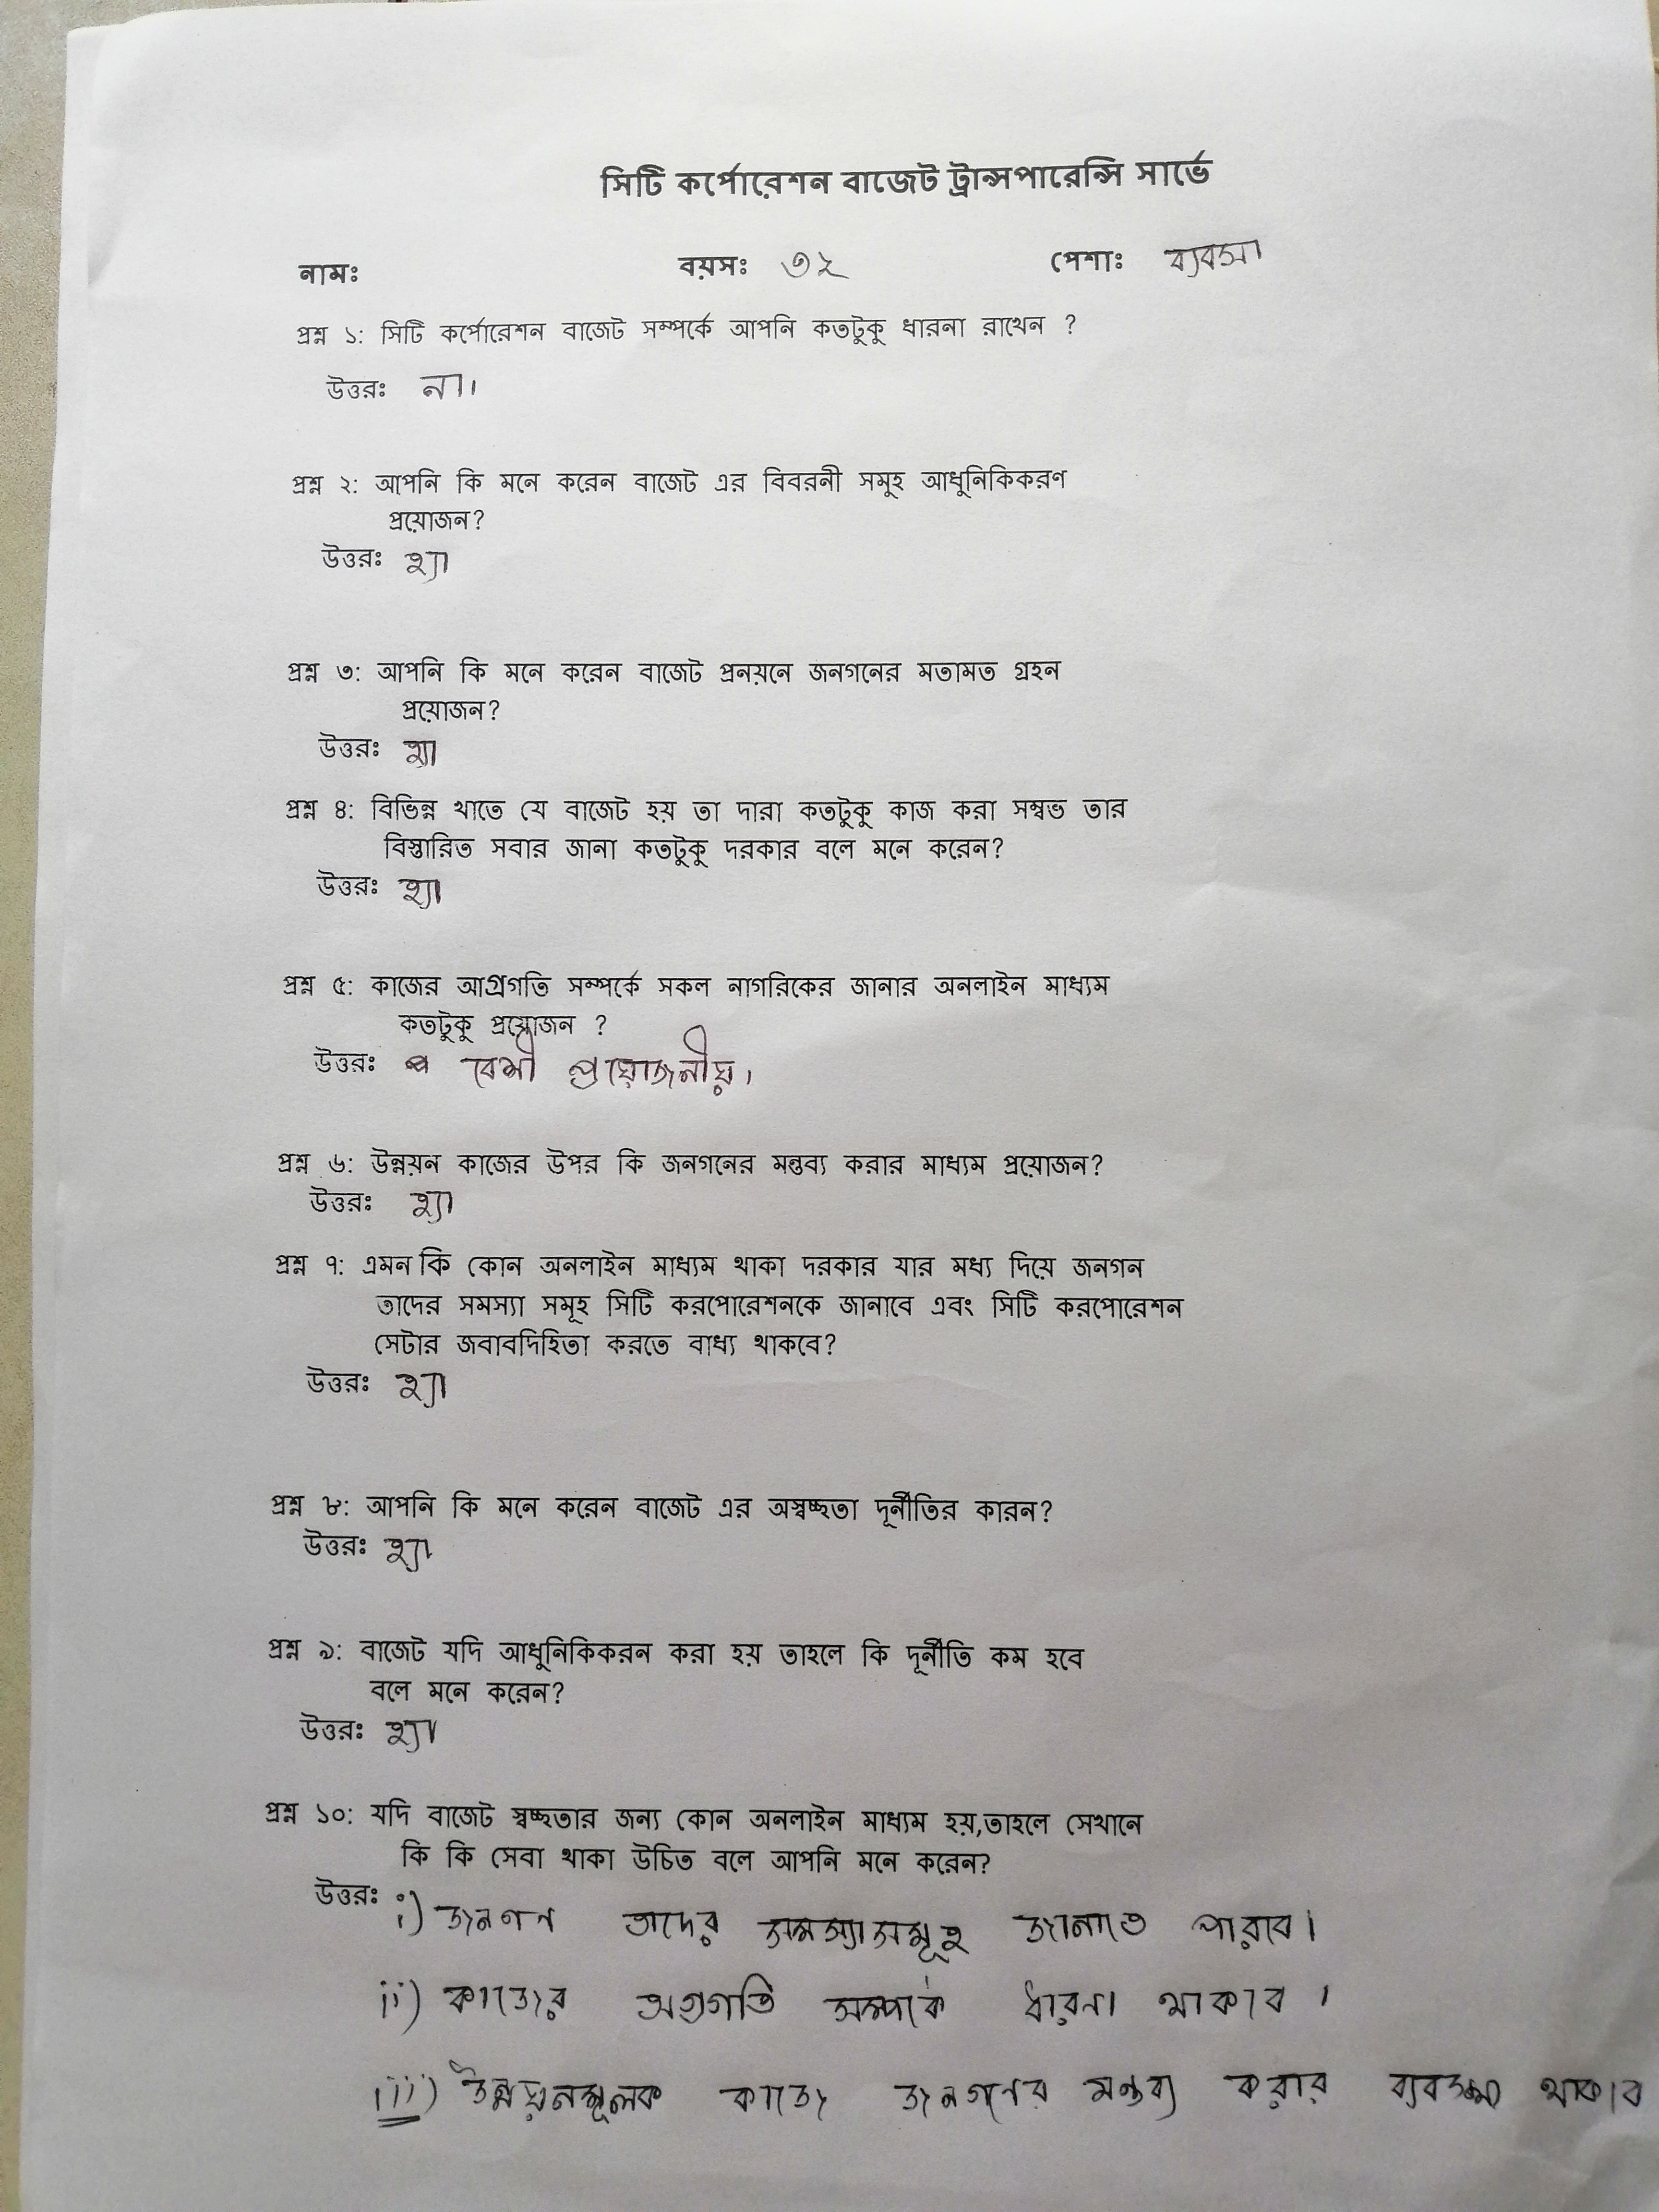 সিটি কর্পোরেশন বাজেট ট্রান্সপারেন্সি সার্ভে
নামঃ বয়সঃ ৩২ পেশাঃ ব্যবসা
প্রশ্ন ১: সিটি কর্পোরেশন বাজেট সম্পর্কে আপনি কতটুকু ধারনা রাখেন ?
উত্তরঃ না।
প্রশ্ন ২: আপনি কি মনে করেন বাজেট এর বিবরনী সমুহ আধুনিকিকরণ
প্রয়োজন?
উত্তরঃ হ্যা
প্রশ্ন ৩: আপনি কি মনে করেন বাজেট প্রনয়নে জনগনের মতামত গ্রহন
প্রয়োজন?
উত্তরঃ হ্যা
প্রশ্ন ৪: বিভিন্ন খাতে যে বাজেট হয় তা দারা কতটুকু কাজ করা সম্বভ তার
বিস্তারিত সবার জানা কতটুকু দরকার বলে মনে করেন?
উত্তরঃ হ্যা
প্রশ্ন ৫: কাজের আগ্রগতি সম্পর্কে সকল নাগরিকের জানার অনলাইন মাধ্যম
কতটুকু প্রয়োজন ?
উত্তরঃ বেশী প্রয়োজনীয়।
প্রশ্ন ৬: উন্নয়ন কাজের উপর কি জনগনের মন্তব্য করার মাধ্যম প্রয়োজন?
উত্তরঃ হ্যা
প্রশ্ন ৭: এমন কি কোন অনলাইন মাধ্যম থাকা দরকার যার মধ্য দিয়ে জনগন
তাদের সমস্যা সমূহ সিটি করপোরেশনকে জানাবে এবং সিটি করপোরেশন
সেটার জবাবদিহিতা করতে বাধ্য থাকবে?
উত্তরঃ হ্যা
প্রশ্ন ৮: আপনি কি মনে করেন বাজেট এর অস্বচ্ছতা দূর্নীতির কারন?
উত্তরঃ হ্যা
প্রশ্ন ৯: বাজেট যদি আধুনিকিকরন করা হয় তাহলে কি দূর্নীতি কম হবে
বলে মনে করেন?
উত্তরঃ হ্যা
প্রশ্ন ১০: যদি বাজেট স্বচ্ছতার জন্য কোন অনলাইন মাধ্যম হয়,তাহলে সেখানে
কি কি সেবা থাকা উচিত বলে আপনি মনে করেন?
উত্তরঃ i) জনগণ তাদের সমস্যাসমূহ জানাতে পারবে।
ii) কাজের অগ্রগতি সম্পর্কে ধারনা থাকবে ।
iii) উন্নয়নমূলক কাজে জনগণের মন্তব্য করার ব্যবস্থা থাকবে